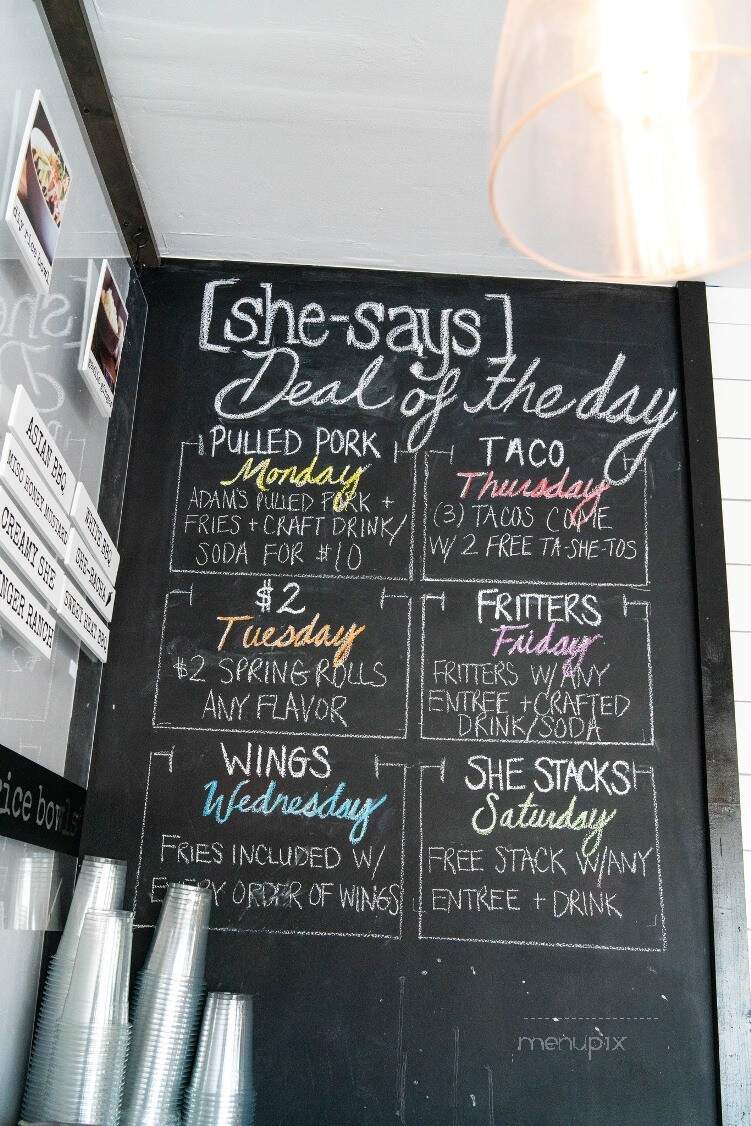 [she-says]
Deal of the day
PULLED PORK
Monday
ADAM'S PULLED PORK +
FRIES + CRAFT DRINK/
SODA FOR $10
$2
Tuesday
$2 SPRING ROLLS
ANY FLAVOR
WINGS
Wednesday
FRIES INCLUDED W/
EVERY ORDER OF WINGS
TACO
Thursday
(3) TACOS COME
W/ 2 FREE TA-SHE-TOS
FRITTERS
Friday
FRITTERS W/ ANY
ENTREE + CRAFTED
DRINK/SODA
SHE STACKS
Saturday
FREE STACK W/ANY
ENTREE + DRINK
diy rice bowl
ASIAN BBQ
MISO HONEY MUSTARD
CREAMY SHE
GINGER RANCH
WHITE BBQ
SHE-RACHA
SWEET HEAT BBQ
rice bowls
menupix